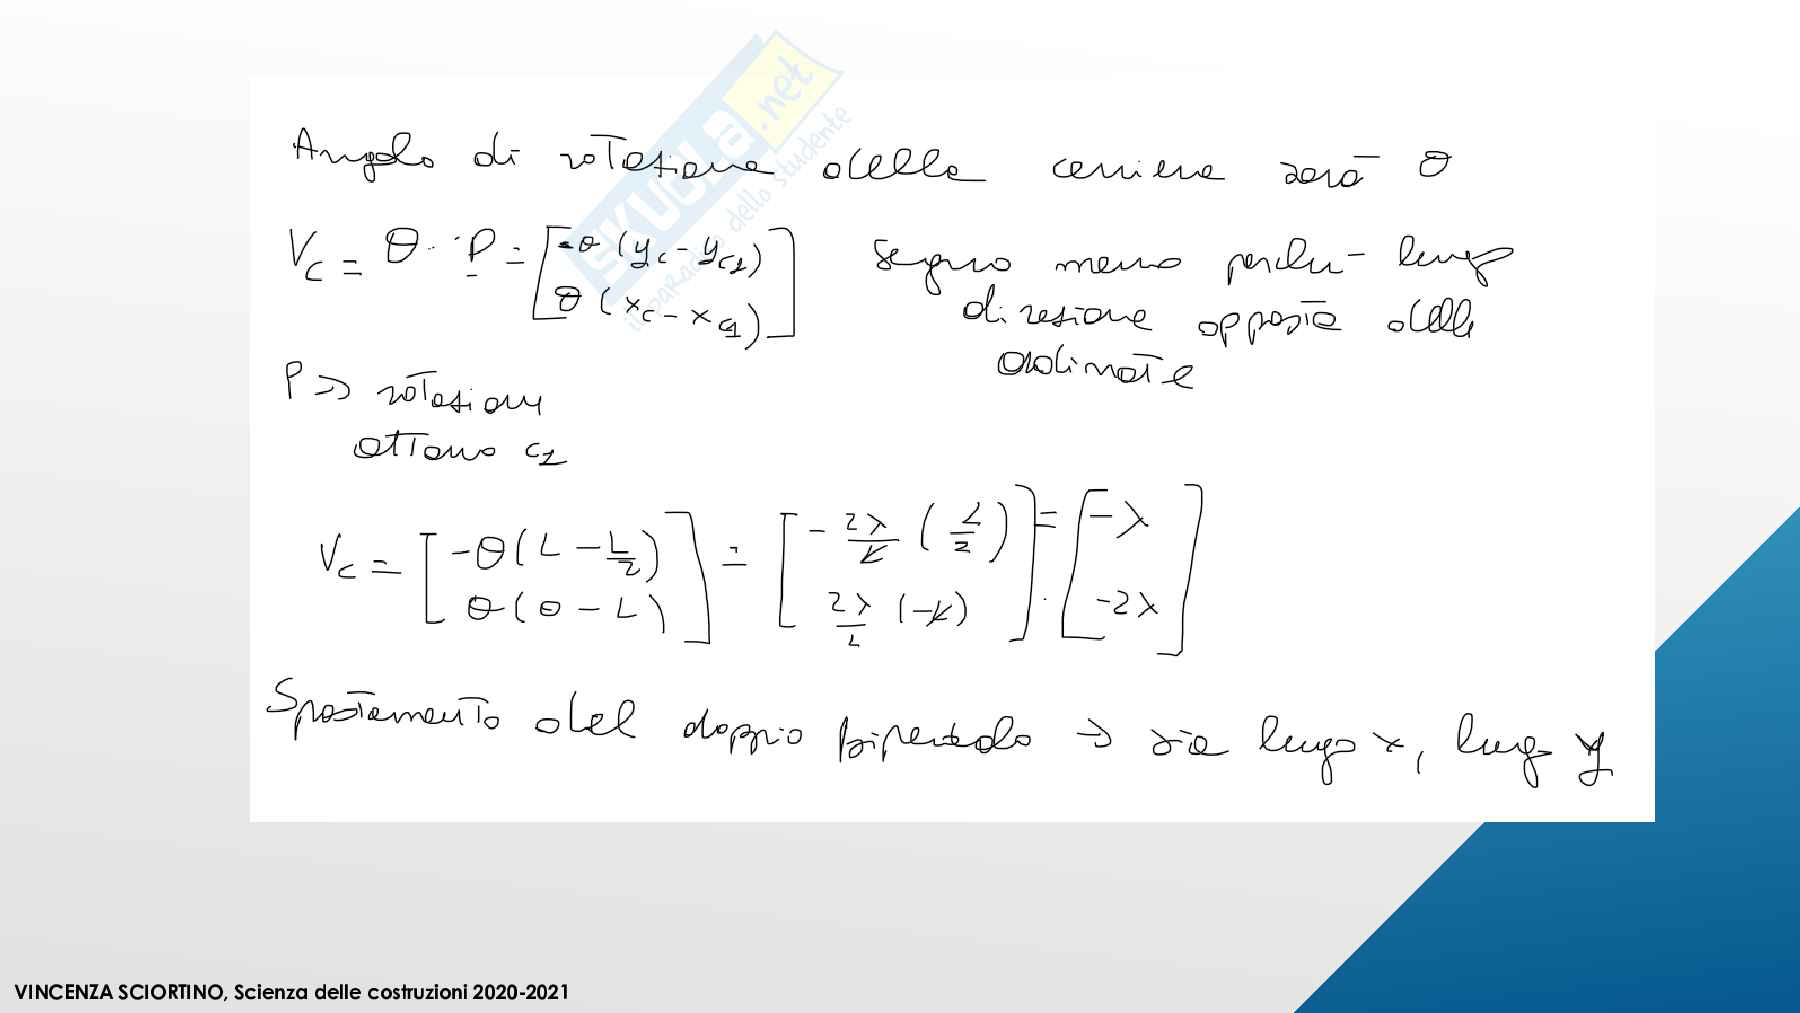 Angolo di rotazione della cerniera sarà θ
V_C = θ · P = [ -θ (y_C - y_C1) ; θ (x_C - x_C1) ] Segno meno perchè lungo
direzione opposta delle
ordinate
P => rotazione
attorno C1
V_C = [ -θ (L - L/2) ; θ (0 - L) ] = [ - 2λ/L (L/2) ; 2λ/L (-L) ] = [ -λ ; -2λ ]
Spostamento del doppio bipendolo → sia lungo x, lungo y
SKUOLA.net
il paradiso dello studente
VINCENZA SCIORTINO, Scienza delle costruzioni 2020-2021